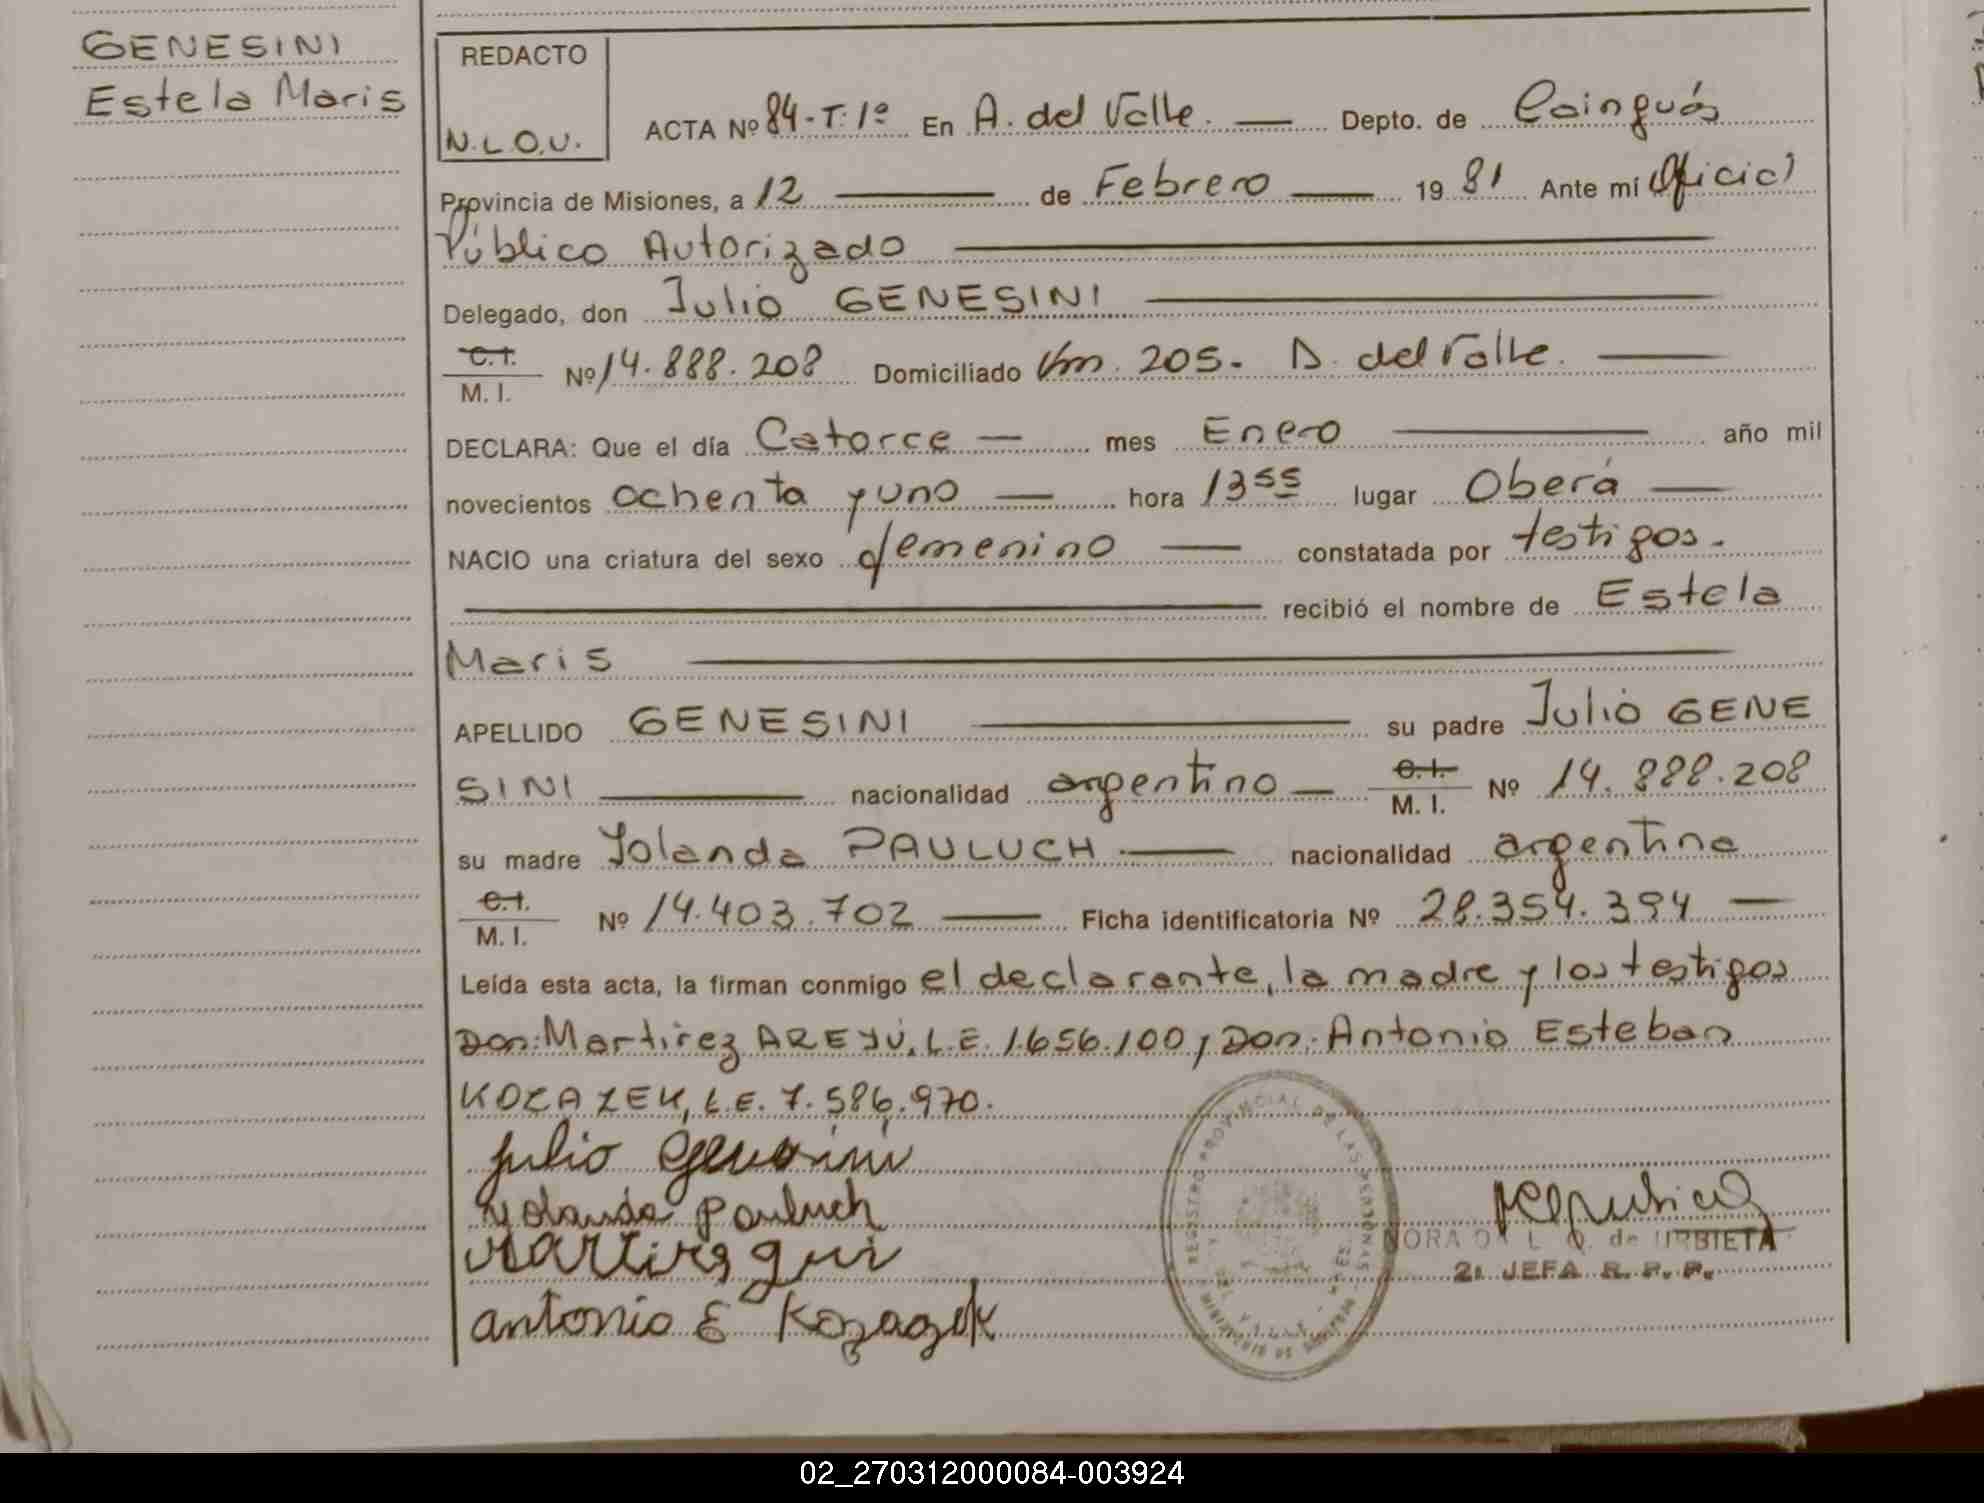 GENESINI
Estela Maris
REDACTO
N.L.O.U.
ACTA Nº 84-T:1º En A. del Valle. Depto. de Cainguás
Provincia de Misiones, a 12 de Febrero 1981 Ante mí Oficial
Público Autorizado
Delegado, don Julio GENESINI
C.I.
M. I. Nº 14.888.208 Domiciliado Km. 205. A. del Valle.
DECLARA: Que el día Catorce mes Enero año mil
novecientos ochenta y uno hora 13 55 lugar Oberá
NACIO una criatura del sexo femenino constatada por testigos.
recibió el nombre de Estela
Maris
APELLIDO GENESINI su padre Julio GENE
SINI nacionalidad argentino C.I. M. I. Nº 14.888.208
su madre Yolanda PAULUCH nacionalidad argentina
C.I.
M. I. Nº 14.403.702 Ficha identificatoria Nº 28.354.394
Leída esta acta, la firman conmigo el declarante, la madre y los testigos
Don: Martirez AREYÚ, L.E. 1.656.100, Don: Antonio Esteban
KOZAZEK, L.E. 7.586.970.
Julio Genesini
Yolanda Pauluch
antonio E Kozazek
REGISTRO PROVINCIAL DE LAS PERSONAS
NORA L. Q. de URBIETA
2a. JEFA R. P. P.
02_270312000084-003924